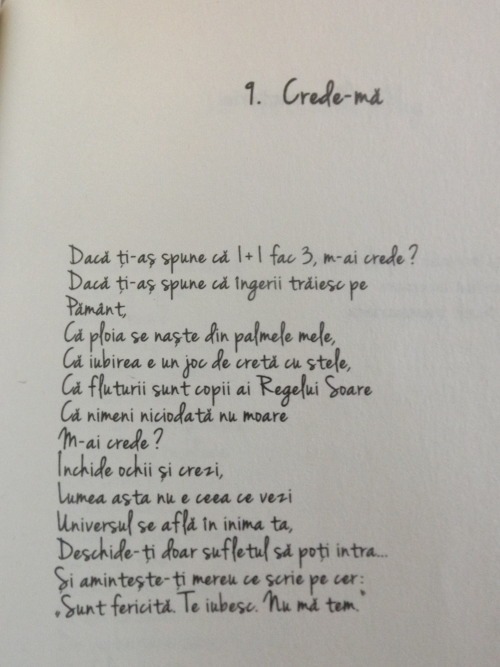 9. Crede-mă
Dacă ți-aș spune că 1+1 fac 3, m-ai crede?
Dacă ți-aș spune că îngerii trăiesc pe
Pământ,
Că ploia se naște din palmele mele,
Că iubirea e un joc de cretă cu stele,
Că fluturii sunt copii ai Regelui Soare
Că nimeni niciodată nu moare
M-ai crede?
Închide ochii și crezi,
Lumea asta nu e ceea ce vezi
Universul se află în inima ta,
Deschide-ți doar sufletul să poți intra...
Și amintește-ți mereu ce scrie pe cer:
„Sunt fericită. Te iubesc. Nu mă tem."